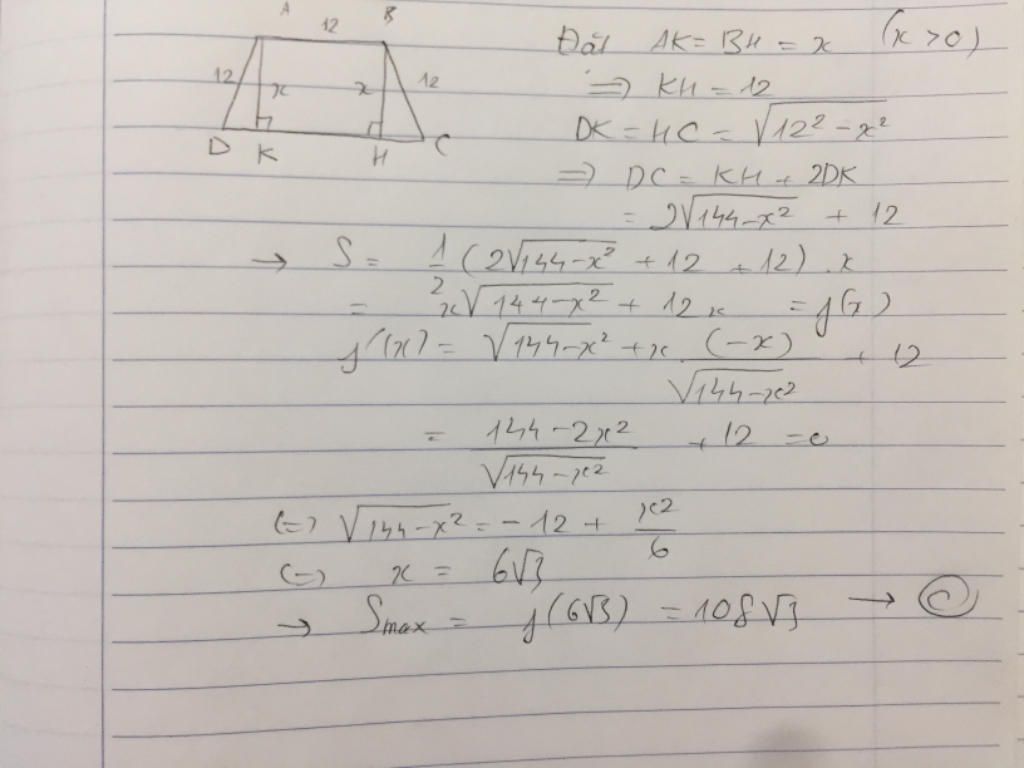 A 12 B
12 x x 12
D K H C
Đặt AK = BH = x (x > 0)
=> KH = 12
DK = HC = √(12² - x²)
=> DC = KH + 2DK
= 2√(144-x²) + 12
→ S = 1/2 (2√(144-x²) + 12 + 12) . x
= x√(144-x²) + 12x = f(x)
f'(x) = √(144-x²) + x (-x)/√(144-x²) + 12
= (144-2x²)/√(144-x²) + 12 = 0
(=) √(144-x²) = -12 + x²/6
(=) x = 6√3
→ Smax = f(6√3) = 108√3 → C